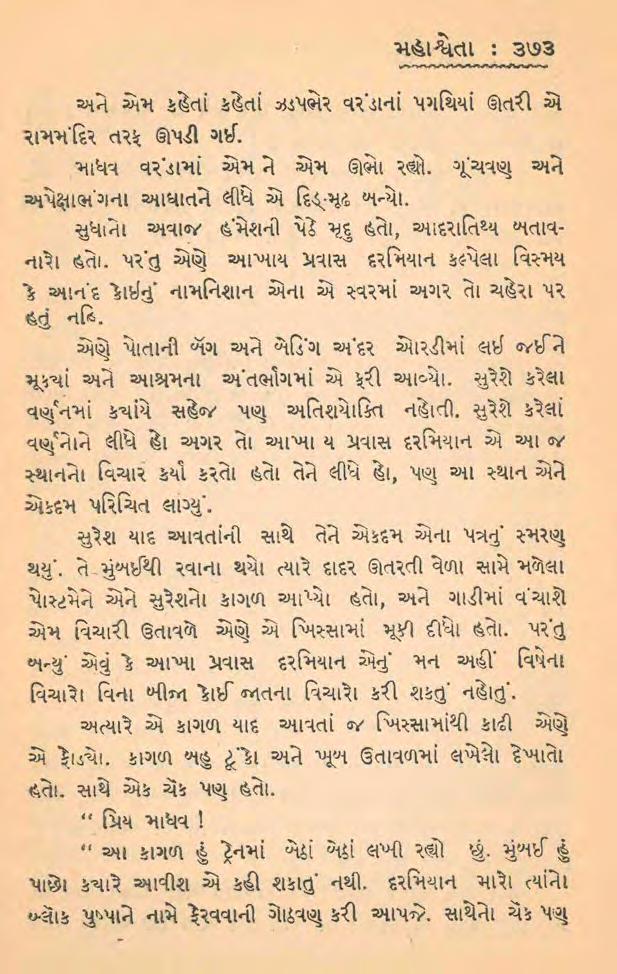 મહાશ્વેતા : ૩૭૩
અને એમ કહેતાં કહેતાં ઝડપભેર વરંડાનાં પગથિયાં ઊતરી એ
રામમંદિર તરફ ઊપડી ગઈ.
માધવ વરંડામાં એમ ને એમ ઊભો રહ્યો. ગૂંચવણ અને
અપેક્ષાભંગના આઘાતને લીધે એ દિડ્-મૂઢ બન્યો.
સુધાનો અવાજ હંમેશની પેઠે મૃદુ હતો, આદરાતિથ્ય બતાવ-
નારો હતો. પરંતુ એણે આખાય પ્રવાસ દરમિયાન કલ્પેલા વિસ્મય
કે આનંદ કોઈનું નામનિશાન એના એ સ્વરમાં અગર તો ચહેરા પર
હતું નહિ.
એણે પોતાની બૅગ અને બેડિંગ અંદર ઓરડીમાં લઈ જઈને
મૂકયાં અને આશ્રમના અંતર્ભાગમાં એ ફરી આવ્યો. સુરેશે કરેલા
વર્ણનમાં કયાંયે સહેજ પણ અતિશયોક્તિ નહોતી. સુરેશે કરેલાં
વર્ણનોને લીધે હો અગર તો આખા ય પ્રવાસ દરમિયાન એ આ જ
સ્થાનનો વિચાર કર્યા કરતો હતો તેને લીધે હો, પણ આ સ્થાન એને
એકદમ પરિચિત લાગ્યું.
સુરેશ યાદ આવતાંની સાથે તેને એકદમ એના પત્રનું સ્મરણ
થયું. તે મુંબઈથી રવાના થયો ત્યારે દાદર ઊતરતી વેળા સામે મળેલા
પોસ્ટમેને એને સુરેશનો કાગળ આપ્યો હતો, અને ગાડીમાં વંચાશે
એમ વિચારી ઉતાવળે એણે એ ખિસ્સામાં મૂકી દીધો હતો. પરંતુ
બન્યું એવું કે આખા પ્રવાસ દરમિયાન એનું મન અહીં વિષેના
વિચારો વિના બીજા કોઈ જાતના વિચારો કરી શકતું નહોતું.
અત્યારે એ કાગળ યાદ આવતાં જ ખિસ્સામાંથી કાઢી એણે
એ ફોડયો. કાગળ બહુ ટૂંકો અને ખૂબ ઉતાવળમાં લખેલો દેખાતો
હતો. સાથે એક ચૅક પણ હતો.
“ પ્રિય માધવ !
“ આ કાગળ હું ટ્રેનમાં બેઠાં બેઠાં લખી રહ્યો છું. મુંબઈ હું
પાછો કયારે આવીશ એ કહી શકાતું નથી. દરમિયાન મારો ત્યાંનો
બ્લૉક પુષ્પાને નામે ફેરવવાની ગોઠવણ કરી આપજે. સાથેનો ચૅક પણ